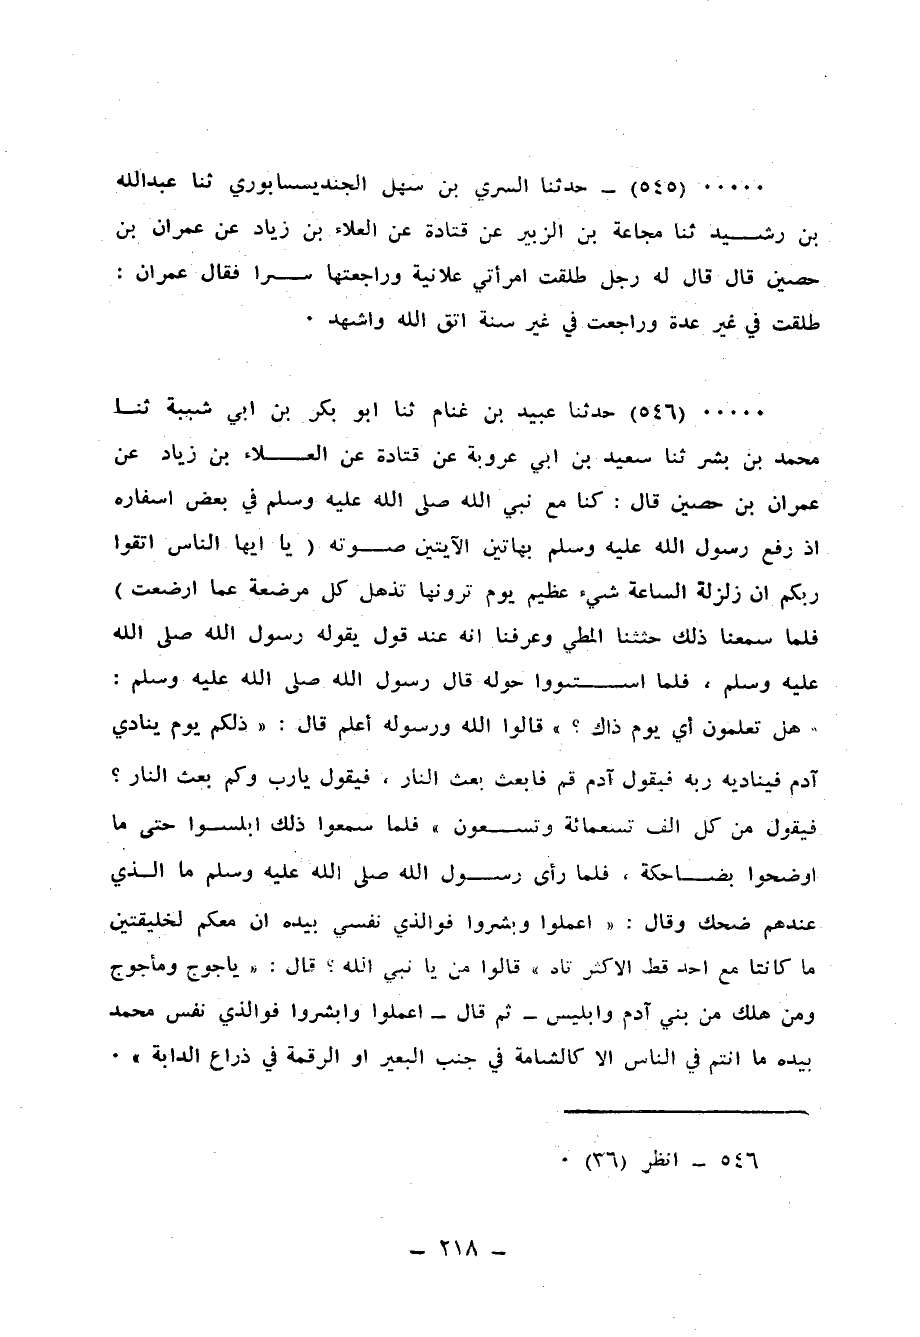 ٠٠٠٠٠ (٥٤٥) ـ حدثنا السري بن سهل الجنديسابوري ثنا عبدالله
بن رشيد ثنا مجاعة بن الزبير عن قتادة عن العلاء بن زياد عن عمران بن
حصين قال قال له رجل طلقت امرأتي علانية وراجعتها سرا فقال عمران :
طلقت في غير عدة وراجعت في غير سنة اتق الله واشهد ٠
٠٠٠٠٠ (٥٤٦) حدثنا عبيد بن غنام ثنا ابو بكر بن ابي شيبة ثنا
محمد بن بشر ثنا سعيد بن ابي عروبة عن قتادة عن العلاء بن زياد عن
عمران بن حصين قال : كنا مع نبي الله صلى الله عليه وسلم في بعض اسفاره
اذ رفع رسول الله عليه وسلم بهاتين الآيتين صوته ( يا ايها الناس اتقوا
ربكم ان زلزلة الساعة شيء عظيم يوم ترونها تذهل كل مرضعة عما ارضعت )
فلما سمعنا ذلك حثثنا المطي وعرفنا انه عند قول يقوله رسول الله صلى الله
عليه وسلم ، فلما استووا حوله قال رسول الله صلى الله عليه وسلم :
« هل تعلمون أي يوم ذاك ؟ » قالوا الله ورسوله أعلم قال : « ذلكم يوم ينادي
آدم فيناديه ربه فيقول آدم قم فابعث بعث النار ، فيقول يارب وكم بعث النار ؟
فيقول من كل الف تسعمائة وتسعون » فلما سمعوا ذلك ابلسوا حتى ما
اوضحوا بضاحكة ، فلما رأى رسول الله صلى الله عليه وسلم ما الذي
عندهم ضحك وقال : « اعملوا وبشروا فوالذي نفسي بيده ان معكم لخليقتين
ما كانتا مع احد قط الاكثر تاه » قالوا من يا نبي الله ؟ قال : « ياجوج ومأجوج
ومن هلك من بني آدم وابليس ـ ثم قال ـ اعملوا وابشروا فوالذي نفس محمد
بيده ما انتم في الناس الا كالشامة في جنب البعير او الرقمة في ذراع الدابة » ٠
٥٤٦ ـ انظر (٣٦) ٠
ـ ٢١٨ ـ